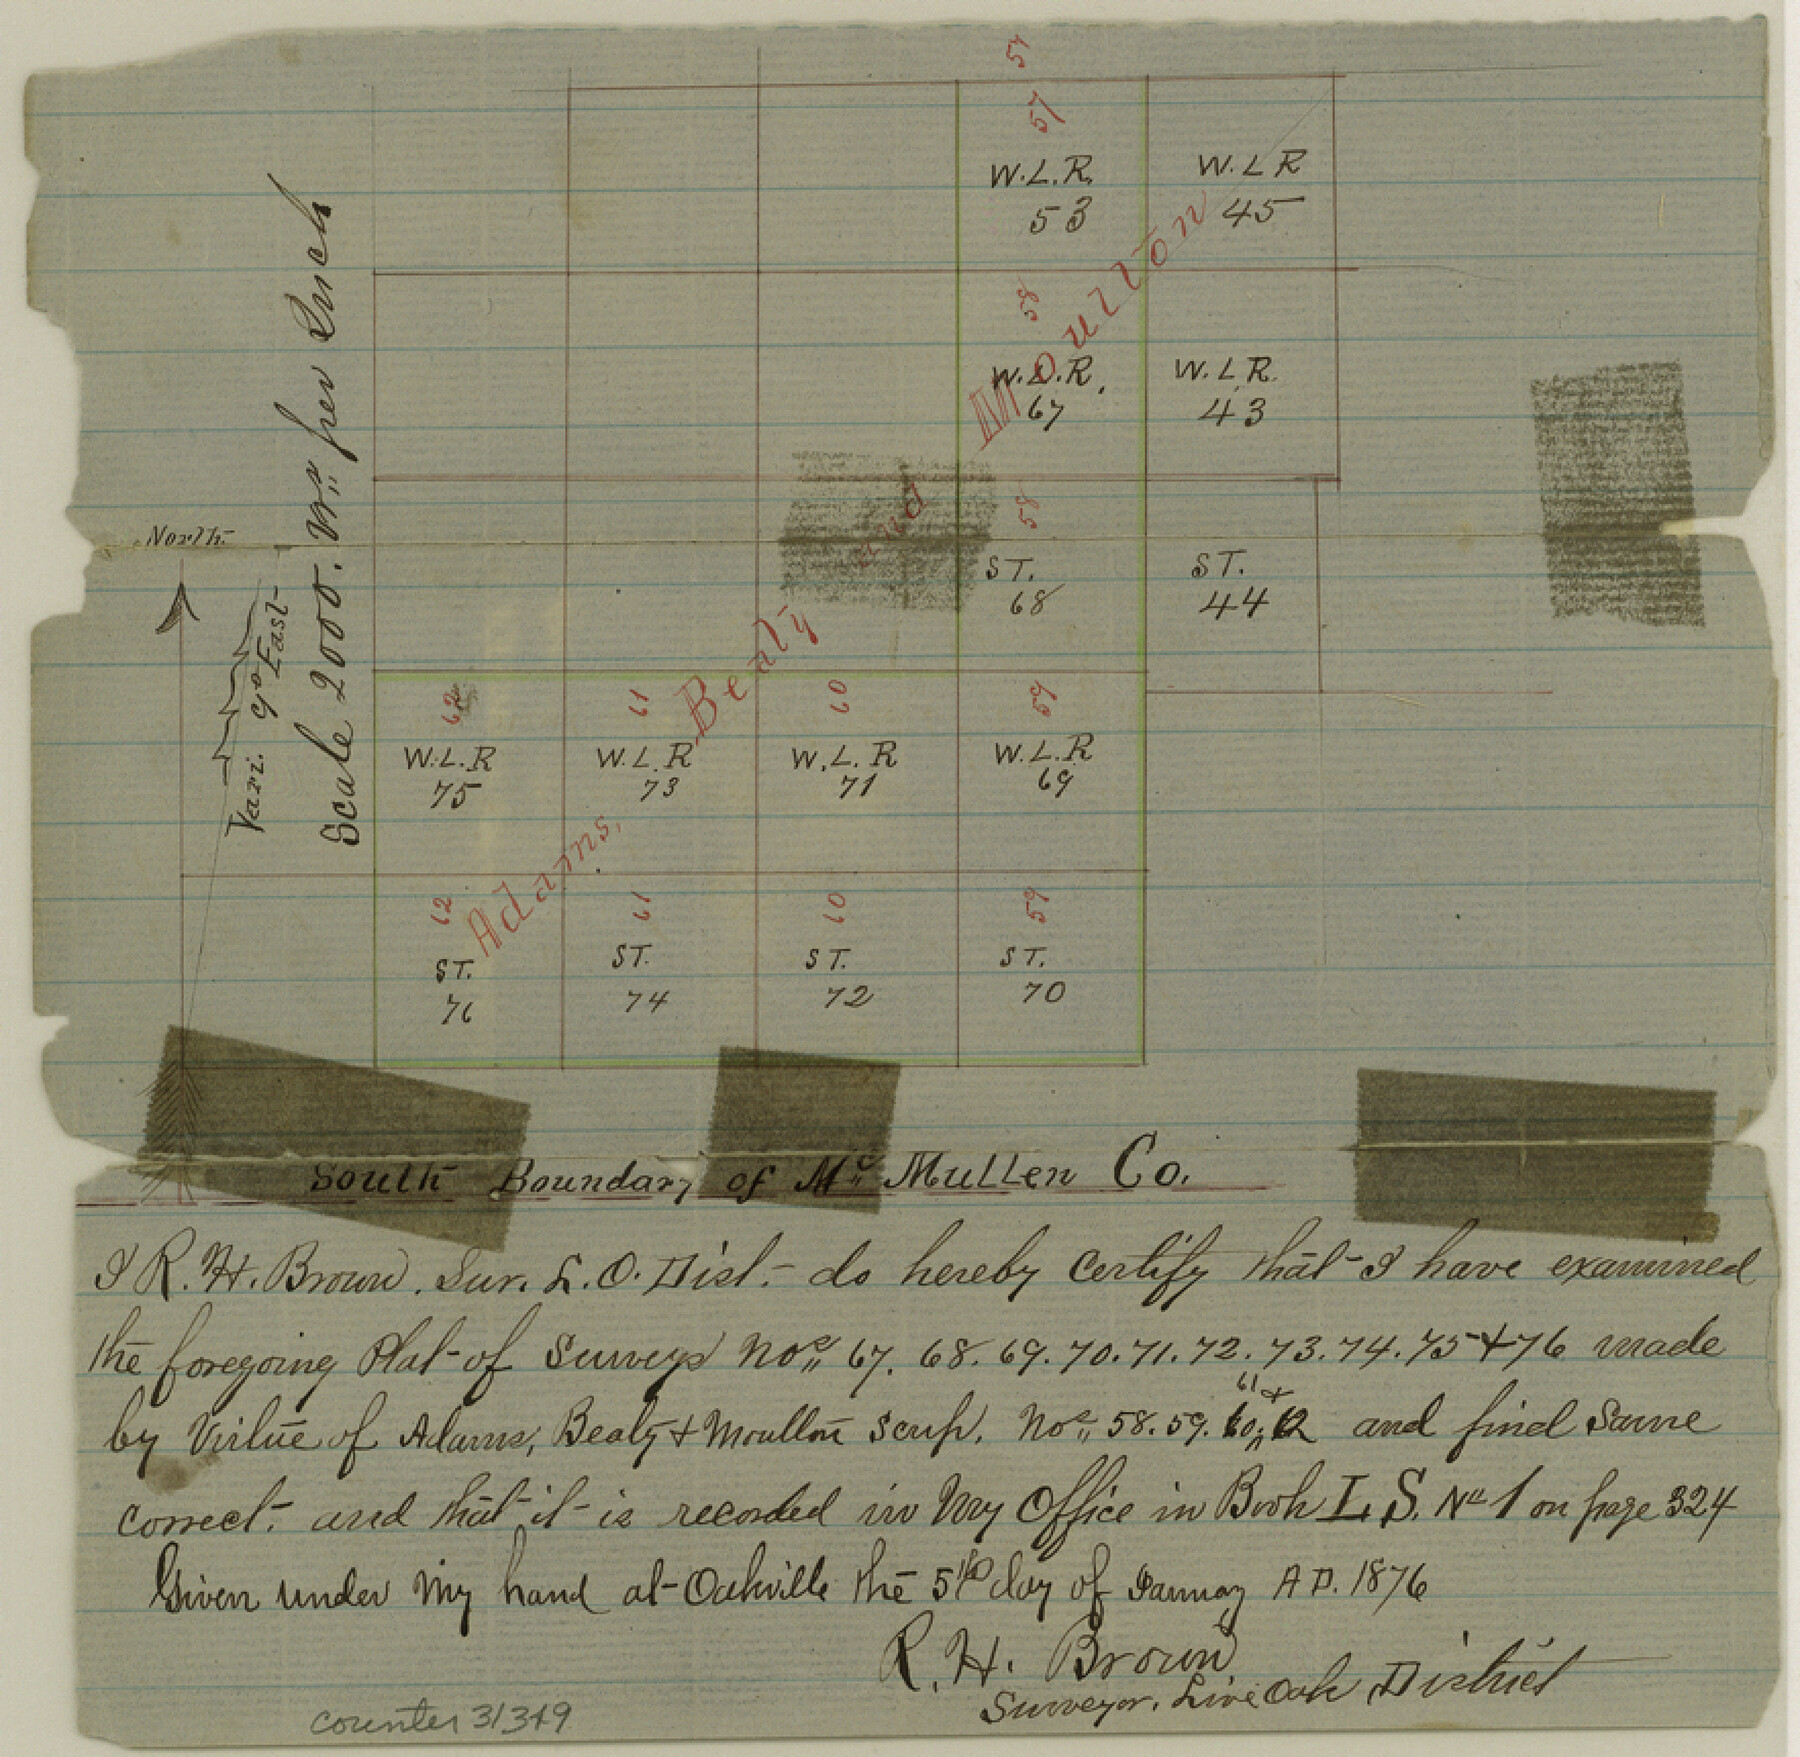 57
57
W.L.R. W.L R
53 45
58
W.L.R. W.L R.
67 43
58
ST. ST.
68 44
North
Vari. 9° East
Scale 2000. Vrs per Inch
Adams, Beaty and Moulton
62 61 60 59
W.L.R W.L.R W.L.R W.L.R
75 73 71 69
62 61 60 59
ST. ST. ST. ST.
76 74 72 70
South Boundary of Mc Mullen Co.
I R. H. Brown. Sur. L. O. Dist. do hereby Certify that I have examined
the foregoing Plat of Surveys Nos 67. 68. 69. 70. 71. 72. 73. 74. 75 + 76 made
by Virtue of Adams, Beaty + Moulton Scrip. Nos 58. 59. 60. 61 + 62 and find Same
correct. and that it is recorded in My Office in Book L. S. No 1 on page 324
Given under My hand at Oakville the 5th day of January A D. 1876
R. H. Brown
Surveyor. Live Oak District
counter 31349